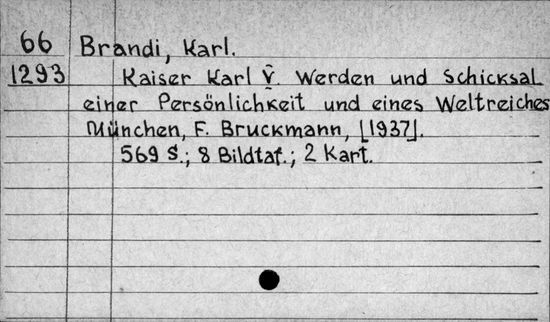 66 Brandi, Karl.
1293 Kaiser Karl V. Werden und Schicksal
einer Persönlichkeit und eines Weltreiches
München, F. Bruckmann, [1937].
569 S.; 8 Bildtaf.; 2 Kart.